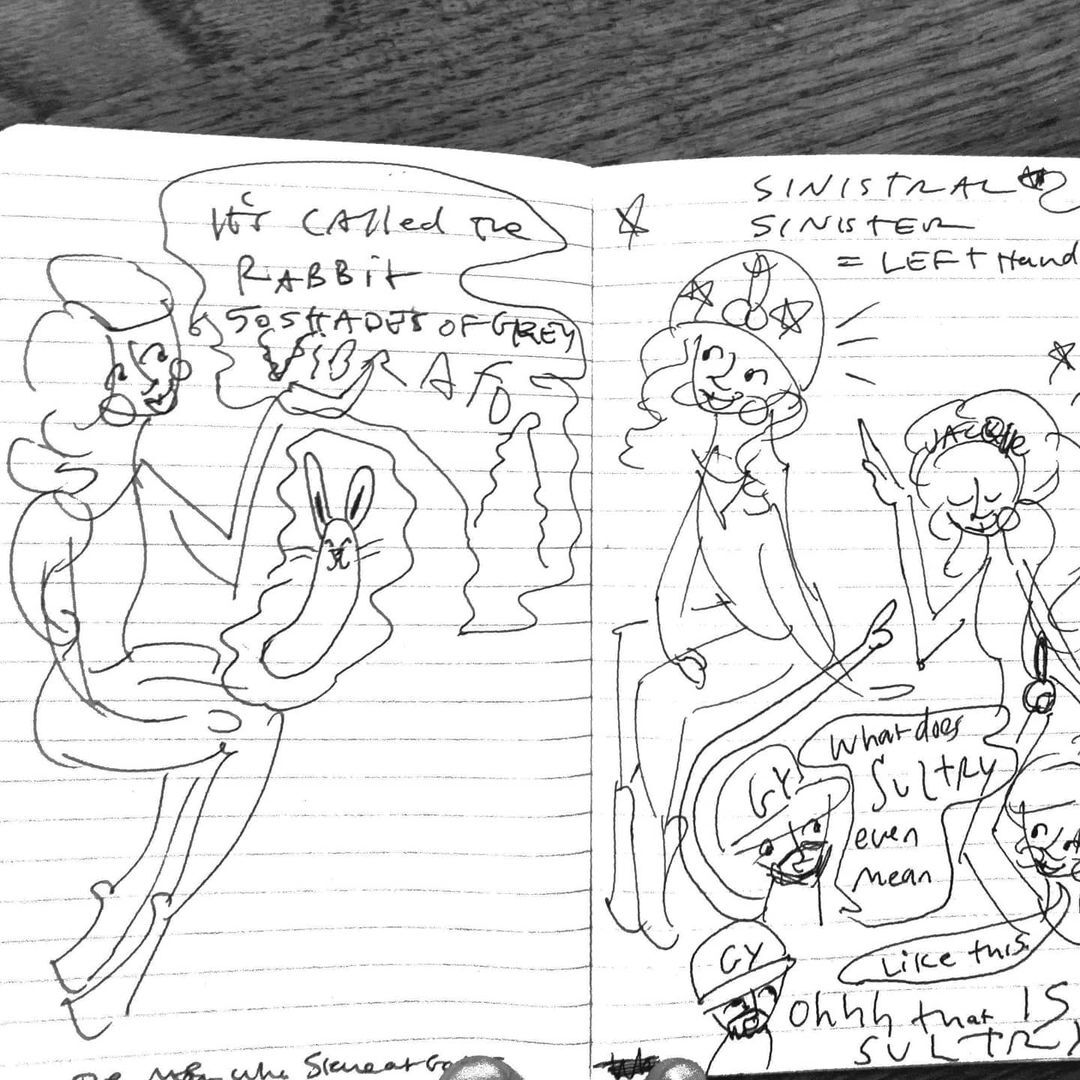 It's CAlled the
RABBit
50 SHADES OF GREY
VIBRATO
SINISTRAL
SINISTER
= LEFT Hand
JACKIE
What does
SULTRY
even
mean
GY
Like this
GY
Ohhh that IS
SULTRY
who